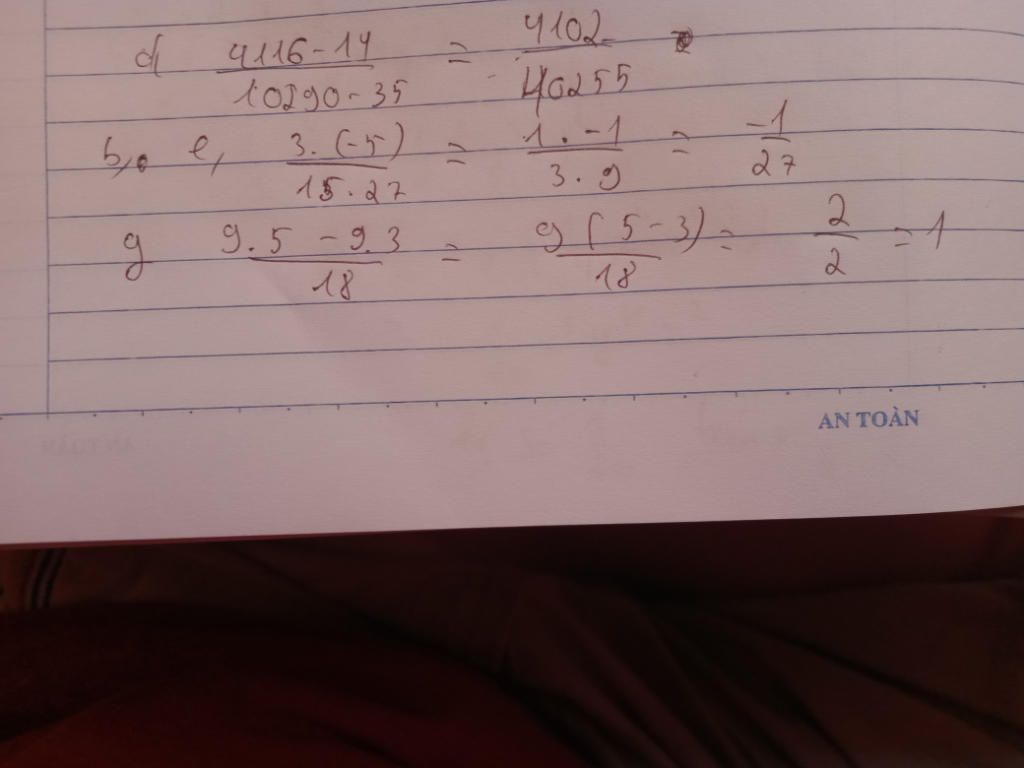 d 4116-14/10290-35 = 4102/10255
b, e, 3.(-5)/15.27 = 1.-1/3.9 = -1/27
g 9.5-9.3/18 = 9(5-3)/18 = 2/2 = 1
AN TOÀN